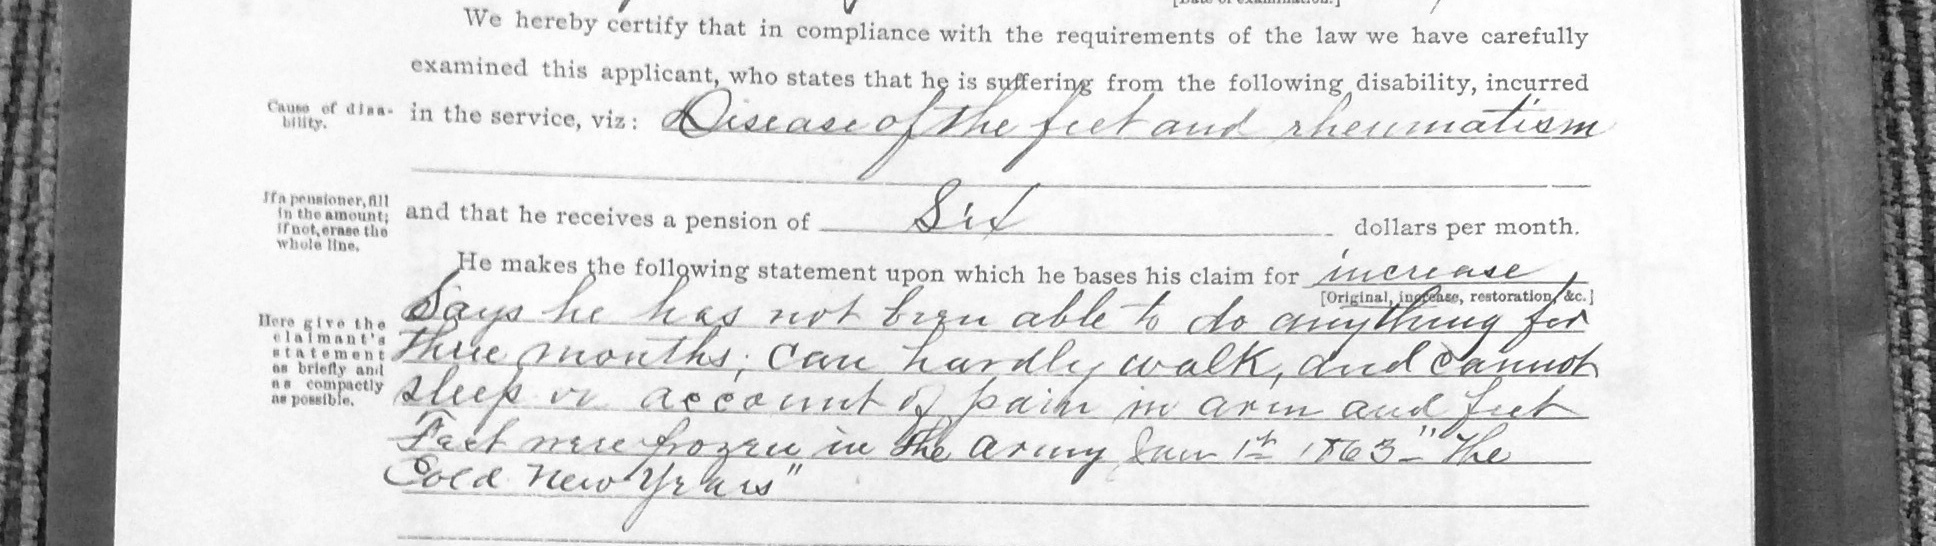 We hereby certify that in compliance with the requirements of the law we have carefully
examined this applicant, who states that he is suffering from the following disability, incurred
Cause of disa-
bility.
in the service, viz: Disease of the feet and rheumatism
If a pensioner, fill
in the amount;
if not, erase the
whole line.
and that he receives a pension of Six dollars per month.
He makes the following statement upon which he bases his claim for increase
[Original, increase, restoration, &c.]
Here give the
claimant's
statement
as briefly and
as compactly
as possible.
Says he has not been able to do anything for
three months; Can hardly walk, and cannot
sleep on account of pain in arm and feet
Feet were frozen in the army Jan 1st 1863 – "The
Cold New Years"